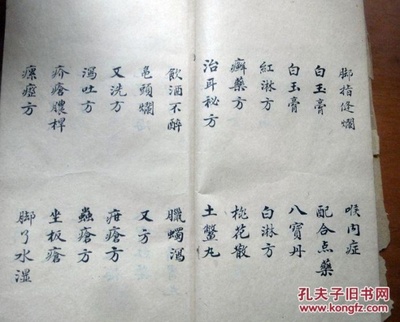 脚指缝爛 喉内症
白玉膏 配合点藥
白玉膏 八寶丹
紅淋方 白淋方
癣藥方 桃花散
治耳秘方 土鳖丸
飲酒不醉 臘蠋瀉
龟頭爛 又方
又洗方 疳瘡方
瀉吐方 蟲瘡方
疥瘡膿桿 坐板瘡
瘰癧方 脚了水濕
孔夫子旧书网
kongfz.com